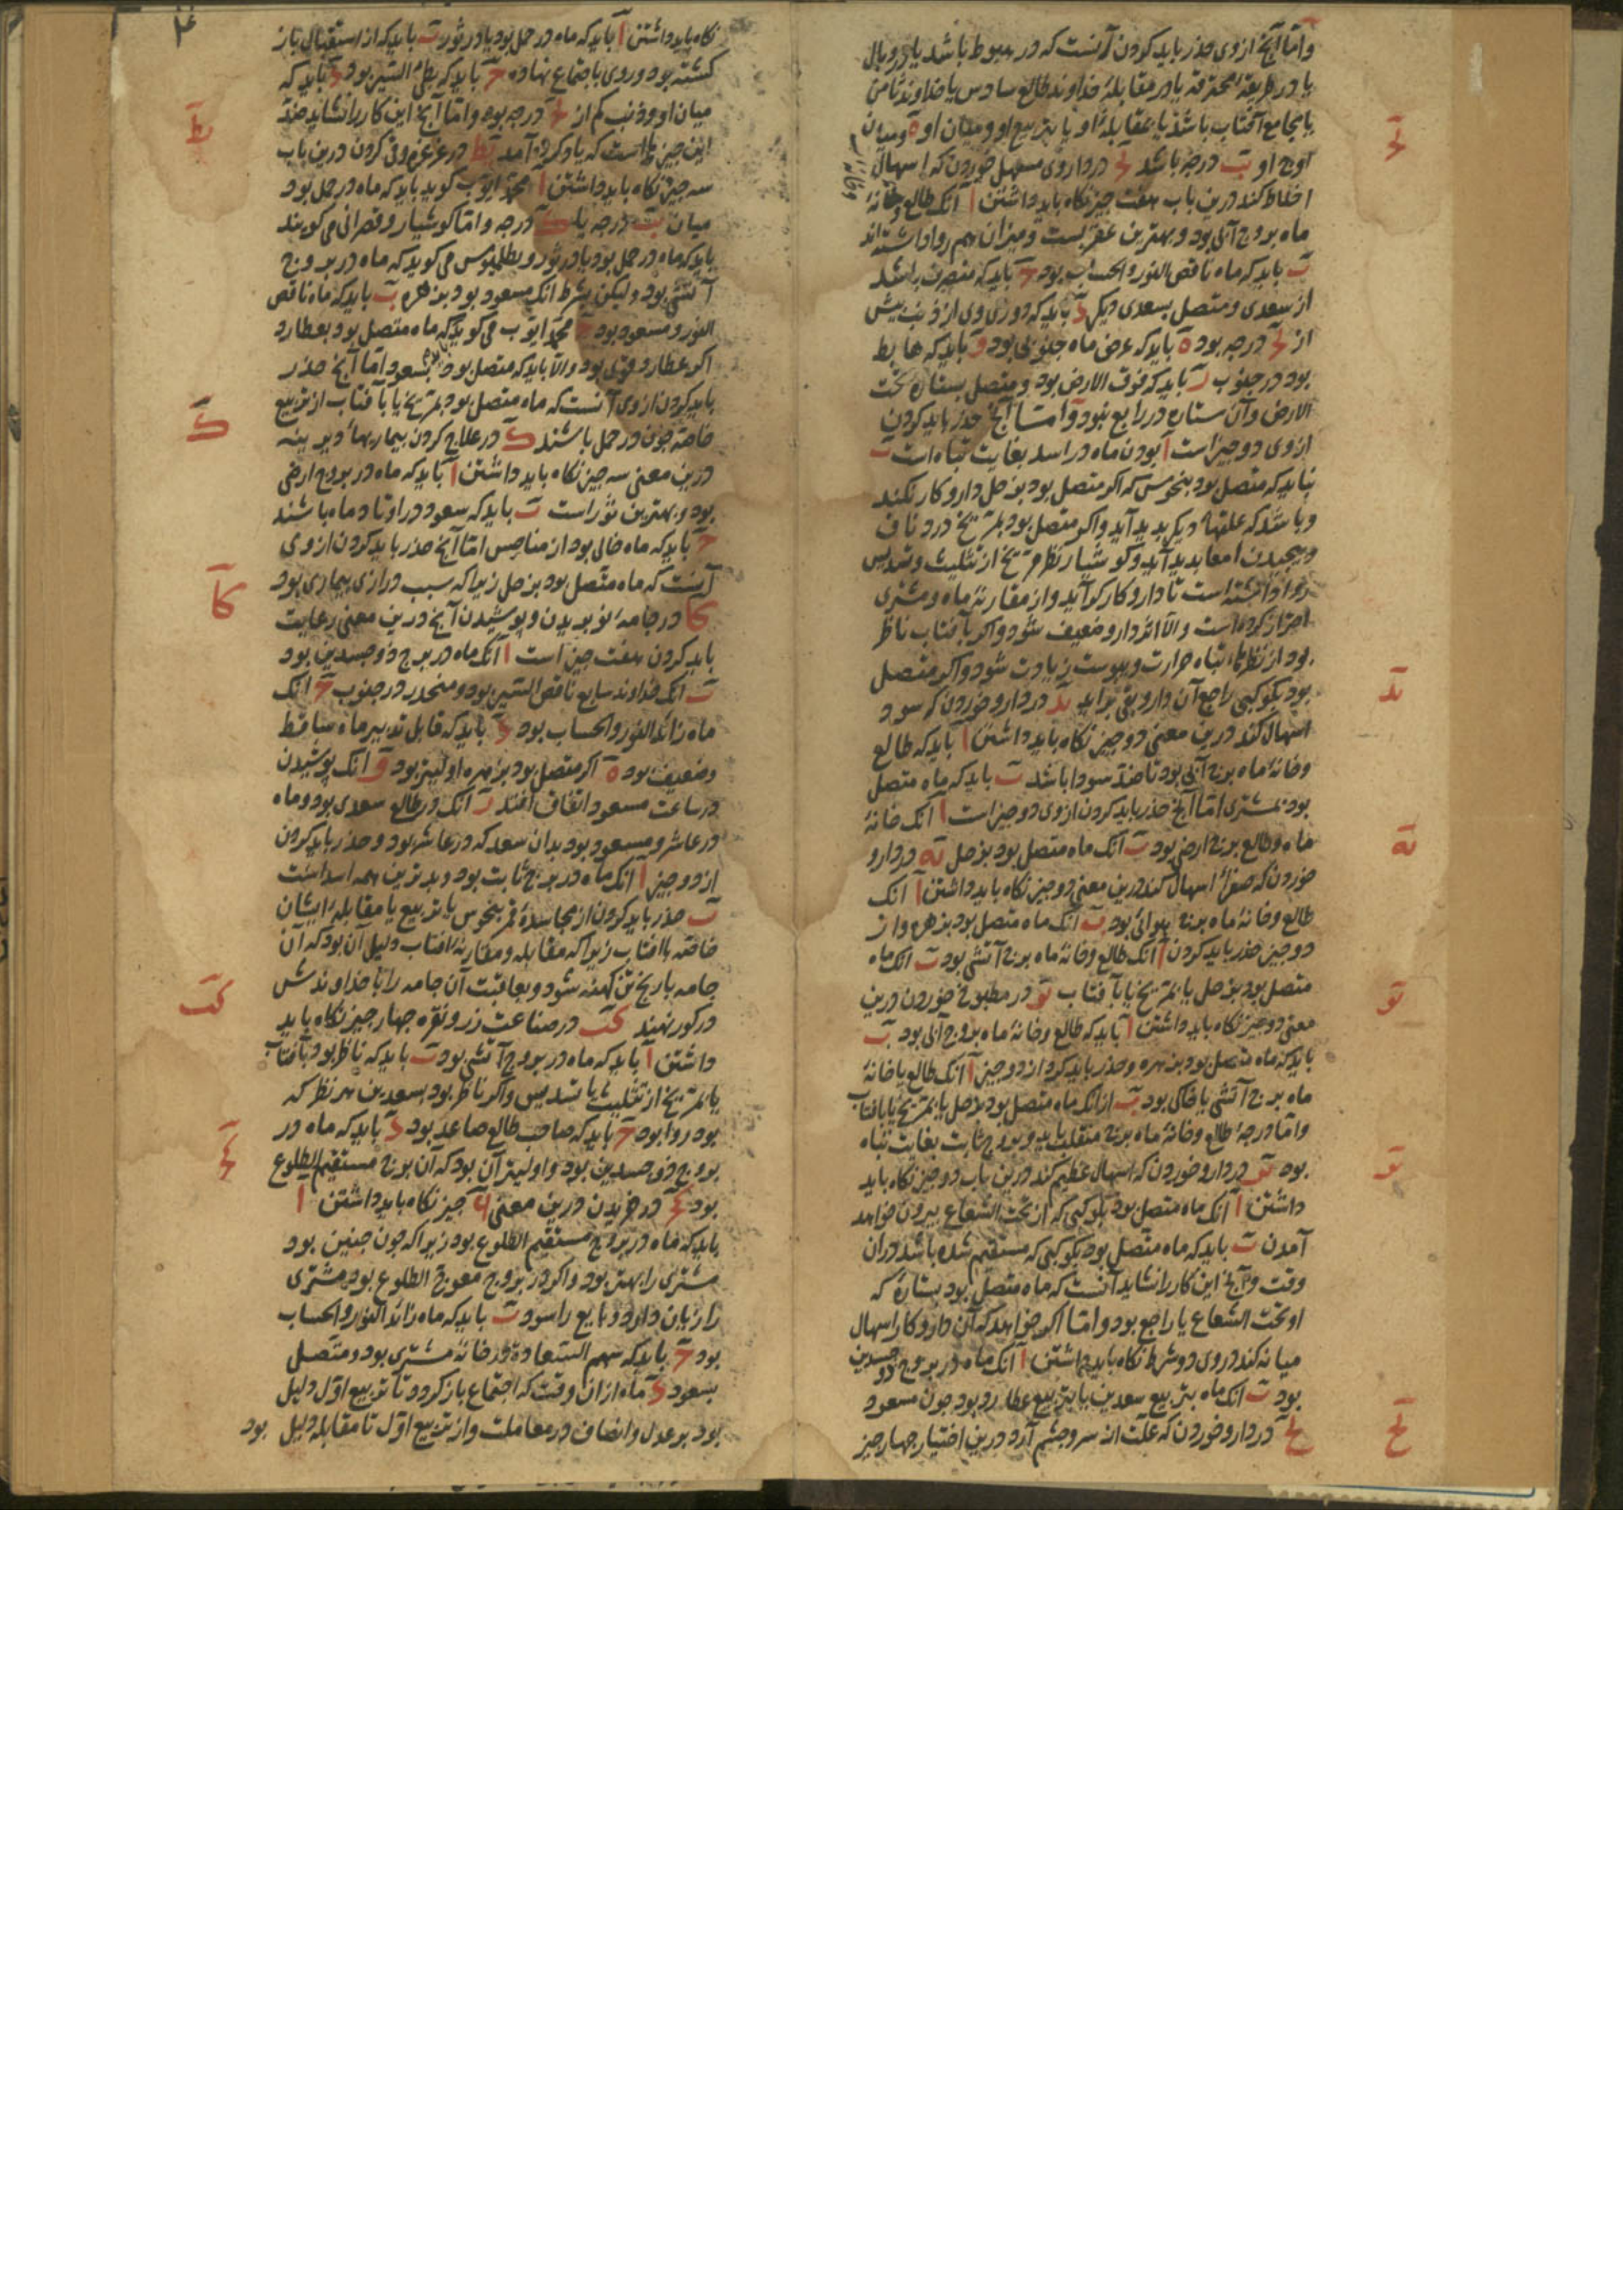 و امّا آنچ از وی حذر باید کردن آنست که در هبوط باشد یا در وبال
یا در طریقهٔ محترقه یا در مقابلهٔ خداوند طالع سادس یا خداوند ثامن
یا مجامع آفتاب باشد یا بمقابلهٔ او یا بتربیع او و میان او ٥ و میان
اوج او ب درجه باشد یج در داروی مسهل خوردن که اسهال
اخلاط کند درین باب هفت چیز نکاه باید داشتن ا آنک طالع و خانهٔ
ماه بروج آبی بود و بهترین عقربست و میزان هم روا داشته‌اند
ب باید که ماه ناقص النور و الحساب بود ج باید که منصرف باشد
از سعدی و متصل بسعدی دیکر د باید که دوری وی از ذنب بیش
از درجه بود ه باید که عرض ماه جنوبی بود و باید که هابط
بود در جنوب ز باید که فوق الارض بود و متصل بستاره تحت
الارض و آن ستاره در رابع نبود و امّا آنچ حذر باید کردن
از وی دو چیز است ا بودن ماه در اسد بغایت تباه است ب
نباید که متصل بود بنحوس که اکر متصل بود بزحل دارو کار نکند
و باشد که علتهاء دیکر پدید آید و اکر متصل بود بمریخ درد ناف
و پیچیدن امعا پدید آید و کوشیار نظر مریخ از تثلیث و تسدیس
روا داشته است تا دارو کار کو آید و از مقارنهٔ ماه و مشتری
احتراز کرده است و الا اثر دارو ضعیف شود و اکر بآفتاب ناظر
بود از نظرهاء تباه حرارت و یبوست زیادت شود و اکر متصل
بود بکوکبی راجع آن دارو بقی براید ید در دارو خوردن که سود
اسهال کند درین معنی دو چیز نکاه باید داشتن ا باید که طالع
و خانهٔ ماه برج آبی بود تا ضد سودا باشد ب باید که ماه متصل
بود بمشتری امّا آنچ حذر باید کردن از وی دو چیز است ا آنک خانهٔ
ماه و طالع برج ارضی بود ب آنک ماه متصل بود بزحل یه در دارو
خوردن که صفرا اسهال کند درین معنی دو چیز نکاه باید داشتن ا آنک
طالع و خانهٔ ماه برج هوائی بود ب آنک ماه متصل بود بزهره و از
دو چیز حذر باید کردن ا آنک طالع و خانهٔ ماه برج آتشی بود ب آنک ماه
متصل بود بزحل یا بمریخ یا بآفتاب یو در مطبوخ خوردن درین
معنی دو چیز نکاه باید داشتن ا باید که طالع و خانهٔ ماه بروج آبی بود ب
باید که ماه متصل بود بزهره و حذر باید کرد از دو چیز ا آنک طالع یا خانهٔ
ماه برج آتشی یا خاکی بود ب از آنک ماه متصل بود بزحل یا بمریخ یا بآفتاب
و امّا درجهٔ طالع و خانهٔ ماه برج منقلب باید و بروج ثابت بغایت تباه
بود یز در دارو خوردن که اسهال عظیم کند درین باب دو چیز نکاه باید
داشتن ا آنک ماه متصل بود بکوکبی که از تحت الشعاع بیرون خواهد
آمدن ب باید که ماه متصل بود بکوکبی که مستقیم شده باشد در آن
وقت و آنچ این کار را نشاید آنست که ماه متصل بود بستارهٔ که
او تحت الشعاع یا راجع بود و امّا اکر خواهد که آن دارو کار اسهال
میانه کند در وی دو شرط نکاه باید داشتن ا آنک ماه در بروج ذو جسدین
بود ب آنک ماه بتربیع سعدین یا بتربیع عطارد بود چون مسعود
یح در دارو خوردن که علت از سر و چشم آرد درین اختیار چهار چیز
یج
ید
یه
یو
یز
یح
نکاه باید داشتن ا باید که ماه در حمل بود یا در ثور ب باید که از استقبال باز
کشته بود و روی باجتماع نهاده ج باید که بطئ السیر بود د باید که
میان او و ذنب کم از درجه بود و امّا آنچ این کار را نشاید ضد
این چیزهاست که یاد کرده آمد یط در غرغره و قی کردن درین باب
سه چیز نکاه باید داشتن ا محمد ایوب کوید باید که ماه در حمل بود
میان ب درجه یا ک درجه و امّا کوشیار و قصرانی می کویند
باید که ماه در حمل بود یا در ثور و بطلمیوس می کوید که ماه در بروج
آتشی بود و لیکن بشرط آنک مسعود بود بزهره ب باید که ماه ناقص
النور و مسعود بود ج محمد ایوب می کوید که ماه متصل بود بعطارد
اکر عطارد قوی بود و الا باید که متصل بود بسعود امّا آنچ حذر
باید کردن از وی آنست که ماه متصل بود بمریخ یا بآفتاب از تربیع
خاصه چون در حمل باشند ک در علاج کردن بیماریهاء دیرینه
درین معنی سه چیز نکاه باید داشتن ا باید که ماه در بروج ارضی
بود و بهترین ثور است ب باید که سعود در اوتاد ماه باشند
ج باید که ماه خالی بود از مناحس امّا آنچ حذر باید کردن از وی
آنست که ماه متصل بود بزحل زیرا که سبب درازی بیماری بود
کا در جامهٔ نو بریدن و پوشیدن آنچ درین معنی رعایت
باید کردن هفت چیز است ا آنک ماه در برج ذو جسدین بود
ب آنک خداوند سابع ناقص السیر بود و منحدر در جنوب ج آنک
ماه زائد النور و الحساب بود د باید که قابل تدبیر ماه ساقط
و ضعیف بود ه اکر متصل بود بزهره اولیتر بود و آنک پوشیدن
در ساعت مسعود اتفاق افتد ز آنک در طالع سعدی بود و ماه
در عاشر و مسعود بود بدان سعد که در عاشر بود و حذر باید کردن
از دو چیز ا آنک ماه در برج ثابت بود و بدترین همه اسد است
ب حذر باید کردن از مجاسدهٔ قمر بنحوس یا تربیع یا مقابلهٔ ایشان
خاصه باآفتاب زیرا که مقابله و مقارنهٔ آفتاب دلیل آن بود که آن
جامه بار بخ تن کهنه شود و بعاقبت آن جامه را با خداوندش
در کور نهند کب در صناعت زر و نقره چهار چیز نکاه باید
داشتن ا باید که ماه در بروج آتشی بود ب باید که ناظر بود بآفتاب
یا بمریخ از تثلیث یا تسدیس و اکر ناظر بود بسعدین هر نظر که
بود روا بود ج باید که صاحب طالع صاعد بود د باید که ماه در
بروج ذو جسدین بود و اولیتر آن بود که آن برج مستقیم الطلوع
بود کج در خریدن درین معنی چیز نکاه باید داشتن ا
باید که ماه در بروج مستقیم الطلوع بود زیرا که چون چنین بود
مشتری را بهتر بود و اکر در بروج معوج الطلوع بود مشتری
را زیان دارد و بایع را سود ب باید که ماه زائد النور و الحساب
بود ج باید که سهم السعادة در خانهٔ مشتری بود و متصل
بسعود د ماه از آن وقت که اجتماع باز کردد تا تربیع اول دلیل
بود بر عدل و انصاف در معاملت و از تربیع اول تا مقابله دلیل بود
یط
ک
کا
کب
کج